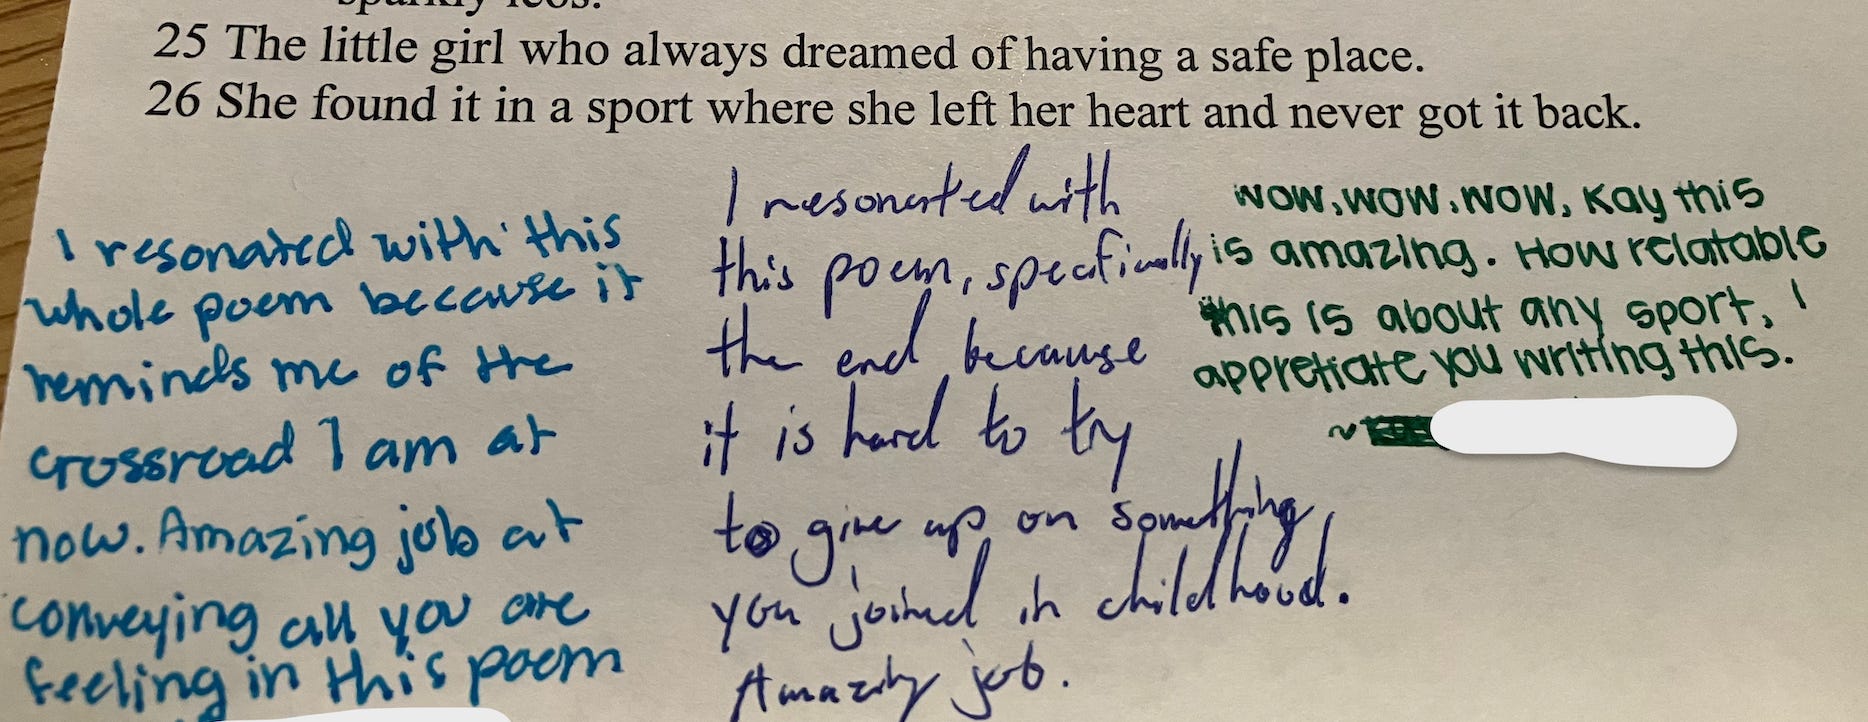 sparkly leos.
25 The little girl who always dreamed of having a safe place.
26 She found it in a sport where she left her heart and never got it back.
I resonated with this
whole poem because it
reminds me of the
crossroad I am at
now. Amazing job at
conveying all you are
feeling in this poem
I resonated with
this poem, specifically
the end because
it is hard to try
to give up on something
you joined in childhood.
Amazing job.
WOW, WOW, WOW, Kay this
is amazing. How relatable
this is about any sport, I
appretiate you writing this.
~